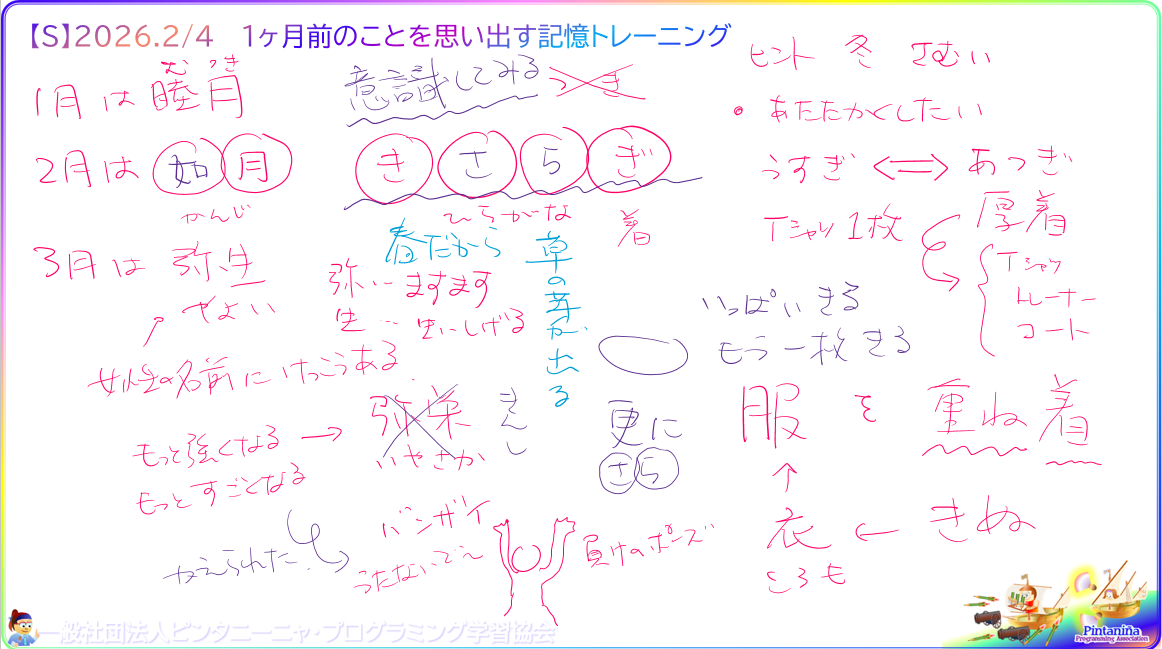 【S】2026.2/4 1ヶ月前のことを思い出す記憶トレーニング
むつき
1月は睦月
意識してみる
つき
2月は如月
かんじ
きさらぎ
ひらがな
着
3月は弥生
やよい
春だから
草の芽が出る
弥…ますます
生…生いしげる
女性の名前にけっこうある
もっと強くなる
もっとすごくなる
弥栄
いやさか
きんし
かえられた
バンザイ
うたないでー
負けのポーズ
ヒント 冬 さむい
・あたたかくしたい
うすぎ ⟺ あつぎ
厚着
Tシャツ1枚
Tシャツ
トレーナー
コート
いっぱいきる
もう一枚きる
更に
さら
服を重ね着
↑
衣 ← きぬ
ころも
一般社団法人ピンタニーニャ・プログラミング学習協会
Pintaniña
Programming Association